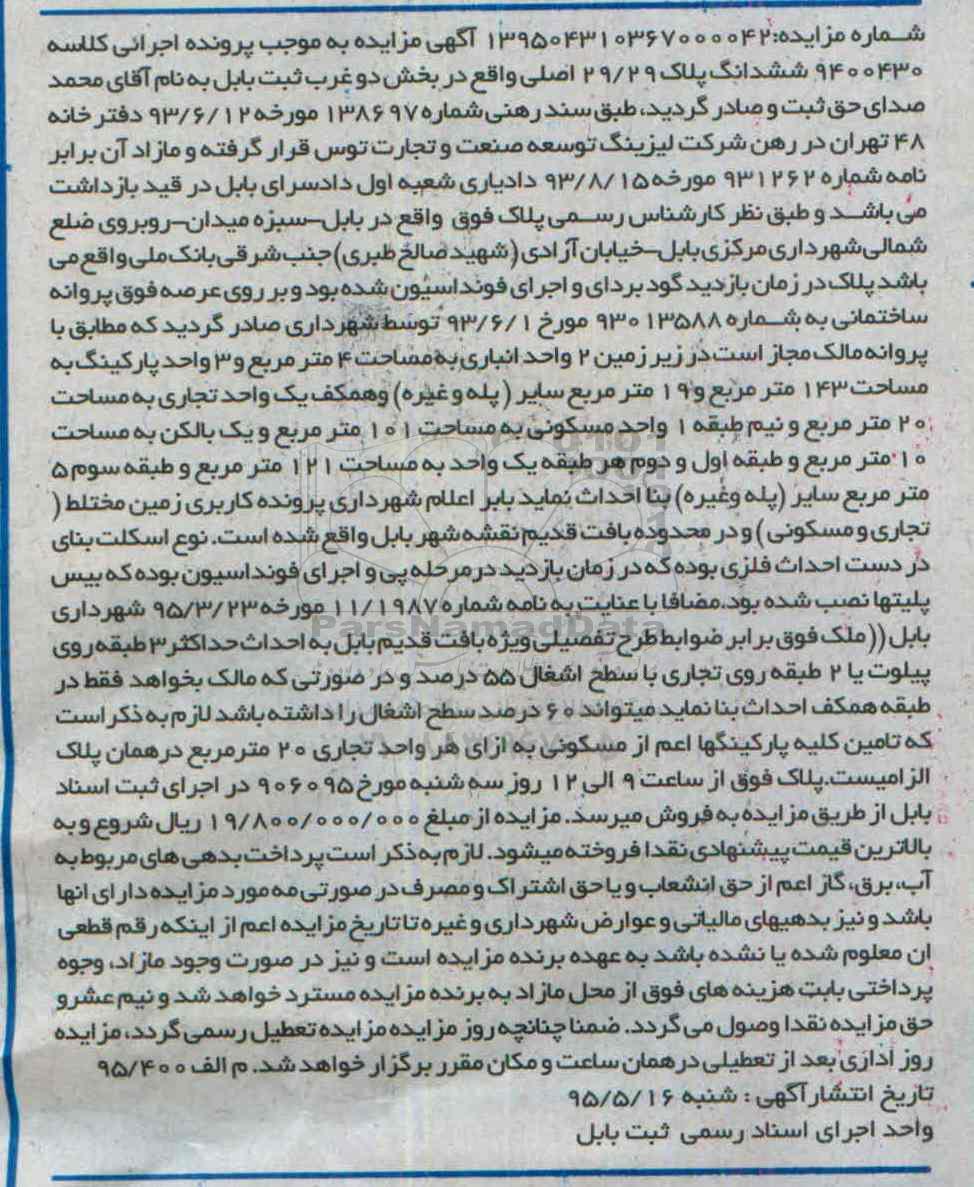 شماره مزایده:۱۳۹۵۰۴۳۱۰۳۶۷۰۰۰۰۴۲ آگهی مزایده به موجب پرونده اجرائی کلاسه
۹۴۰۰۴۳۰ ششدانگ پلاک ۲۹/۲۹ اصلی واقع در بخش دو غرب ثبت بابل به نام آقای محمد
صدای حق ثبت و صادر گردید، طبق سند رهنی شماره ۱۳۸۶۹۷ مورخه ۹۳/۶/۱۲ دفتر خانه
۴۸ تهران در رهن شرکت لیزینگ توسعه صنعت و تجارت توس قرار گرفته و مازاد آن برابر
نامه شماره ۹۳۱۲۶۲ مورخه ۹۳/۸/۱۵ دادیاری شعبه اول دادسرای بابل در قید بازداشت
می باشد و طبق نظر کارشناس رسمی پلاک فوق واقع در بابل–سبزه میدان–روبروی ضلع
شمالی شهرداری مرکزی بابل–خیابان آزادی (شهید صالح طبری) جنب شرقی بانک ملی واقع می
باشد پلاک در زمان بازدید گود بردای و اجرای فونداسیون شده بود و بر روی عرصه فوق پروانه
ساختمانی به شماره ۹۳۰۱۳۵۸۸ مورخ ۹۳/۶/۱ توسط شهرداری صادر گردید که مطابق با
پروانه مالک مجاز است در زیر زمین ۲ واحد انباری به مساحت ۴ متر مربع و ۳ واحد پارکینگ به
مساحت ۱۴۳ متر مربع و ۱۹ متر مربع سایر (پله و غیره) وهمکف یک واحد تجاری به مساحت
۲۰ متر مربع و نیم طبقه ۱ واحد مسکونی به مساحت ۱۰۱ متر مربع و یک بالکن به مساحت
۱۰ متر مربع و طبقه اول و دوم هر طبقه یک واحد به مساحت ۱۲۱ متر مربع و طبقه سوم ۵
متر مربع سایر (پله وغیره) بنا احداث نماید بابر اعلام شهرداری پرونده کاربری زمین مختلط (
تجاری و مسکونی ) و در محدوده بافت قدیم نقشه شهر بابل واقع شده است. نوع اسکلت بنای
در دست احداث فلزی بوده که در زمان بازدید در مرحله پی و اجرای فونداسیون بوده که بیس
پلیتها نصب شده بود.مضافا با عنایت به نامه شماره ۱۱/۱۹۸۷ مورخه ۹۵/۳/۲۳ شهرداری
بابل (( ملک فوق برابر ضوابط طرح تفصیلی ویژه بافت قدیم بابل به احداث حداکثر ۳ طبقه روی
پیلوت یا ۲ طبقه روی تجاری با سطح اشغال ۵۵ درصد و در صورتی که مالک بخواهد فقط در
طبقه همکف احداث بنا نماید میتواند ۶۰ درصد سطح اشغال را داشته باشد لازم به ذکر است
که تامین کلیه پارکینگها اعم از مسکونی به ازای هر واحد تجاری ۲۰ مترمربع درهمان پلاک
الزامیست.پلاک فوق از ساعت ۹ الی ۱۲ روز سه شنبه مورخ ۹۰۶۰۹۵ در اجرای ثبت اسناد
بابل از طریق مزایده به فروش میرسد. مزایده از مبلغ ۱۹/۸۰۰/۰۰۰/۰۰۰ ریال شروع و به
بالاترین قیمت پیشنهادی نقدا فروخته میشود. لازم به ذکر است پرداخت بدهی های مربوط به
آب، برق، گاز اعم از حق انشعاب و یا حق اشتراک و مصرف در صورتی مه مورد مزایده دارای انها
باشد و نیز بدهیهای مالیاتی و عوارض شهرداری و غیره تا تاریخ مزایده اعم از اینکه رقم قطعی
ان معلوم شده یا نشده باشد به عهده برنده مزایده است و نیز در صورت وجود مازاد، وجوه
پرداختی بابت هزینه های فوق از محل مازاد به برنده مزایده مسترد خواهد شد و نیم عشر و
حق مزایده نقدا وصول می گردد. ضمنا چنانچه روز مزایده مزایده تعطیل رسمی گردد، مزایده
روز اداری بعد از تعطیلی در همان ساعت و مکان مقرر برگزار خواهد شد. م الف ۹۵/۴۰۰
تاریخ انتشار آگهی : شنبه ۹۵/۵/۱۶
واحد اجرای اسناد رسمی ثبت بابل
ParsNamadData